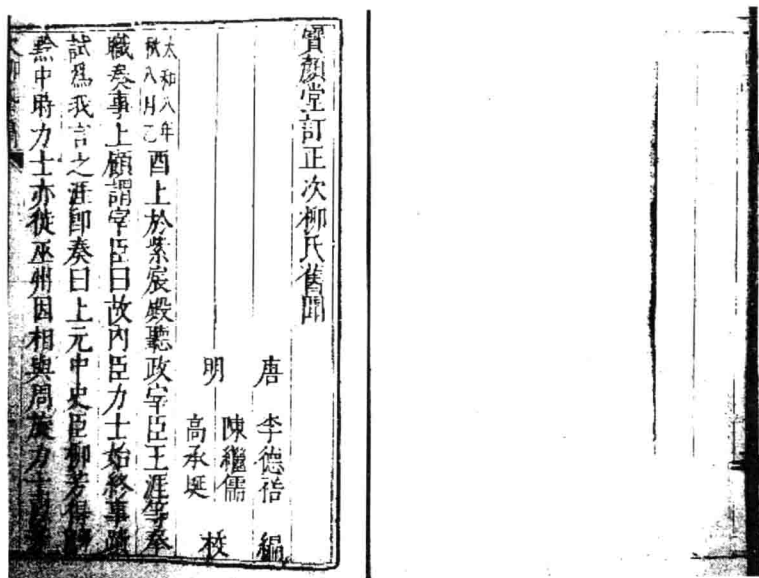 寳顏堂訂正次柳氏舊聞
唐 李德裕 編
陳繼儒
明 校
高承埏
太和八年
秋八月乙
酉上於紫宸殿聽政宰臣王涯等奉
職奏事上顧謂宰臣曰故內臣力士始終事蹟
試爲我言之涯即奏曰上元中史臣柳芳得罪
黔中時力士亦徙巫州因相與周旋力士以